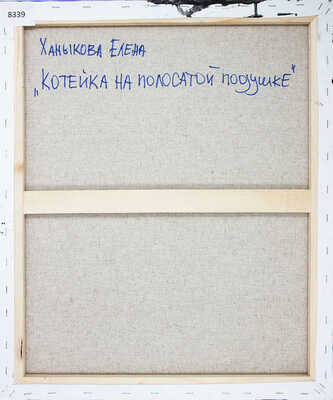 8339
Ханыкова Елена
„Котейка на полосатой подушке"